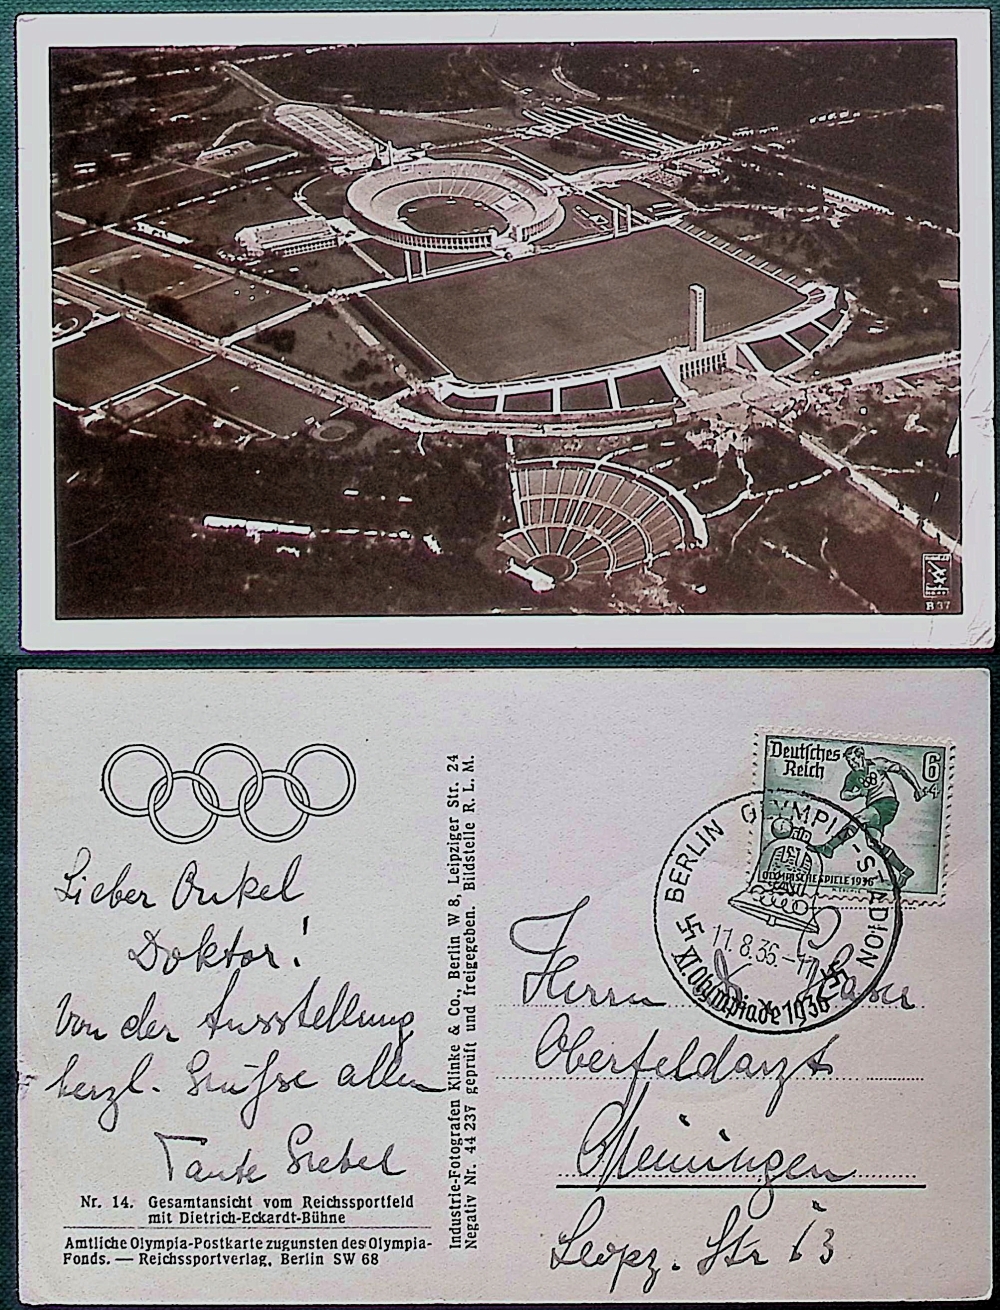 R 37
Deutsches
Reich
6
+4
OLYMPISCHE SPIELE 1936
BERLIN OLYMPIA-STADION
11.8.36.-17
XI. Olympiade 1936
Lieber Onkel
Doktor!
Von der Ausstellung
herzl. Grüsse allen
Tante Gretel
Nr. 14. Gesamtansicht vom Reichssportfeld
mit Dietrich-Eckardt-Bühne
Amtliche Olympia-Postkarte zugunsten des Olympia-
Fonds. — Reichssportverlag, Berlin SW 68
Industrie-Fotografen Klinke & Co., Berlin W 8, Leipziger Str. 24
Negativ Nr. 44 237 geprüft und freigegeben. Bildstelle R. L. M.
Herrn
Oberfeldarzt
Meiningen
Leipz. Str 13